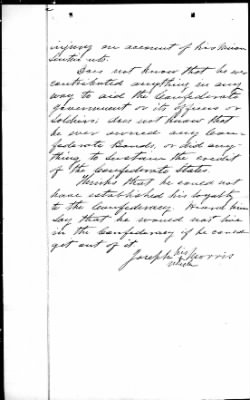 injury on account of his Union
sentiments.
Does not know that he ever
contributed anything in any
way to aid the Confederate
government or its officers or
soldiers. does not know that
he ever owned any Con-
federate Bonds, or did any-
thing to sustain the credit
of the Confederate States.
Thinks that he could not
have established his loyalty
to the Confederacy. Heard him
say that he would not live
in the Confederacy if he could
get out of it
Joseph his x mark Morris